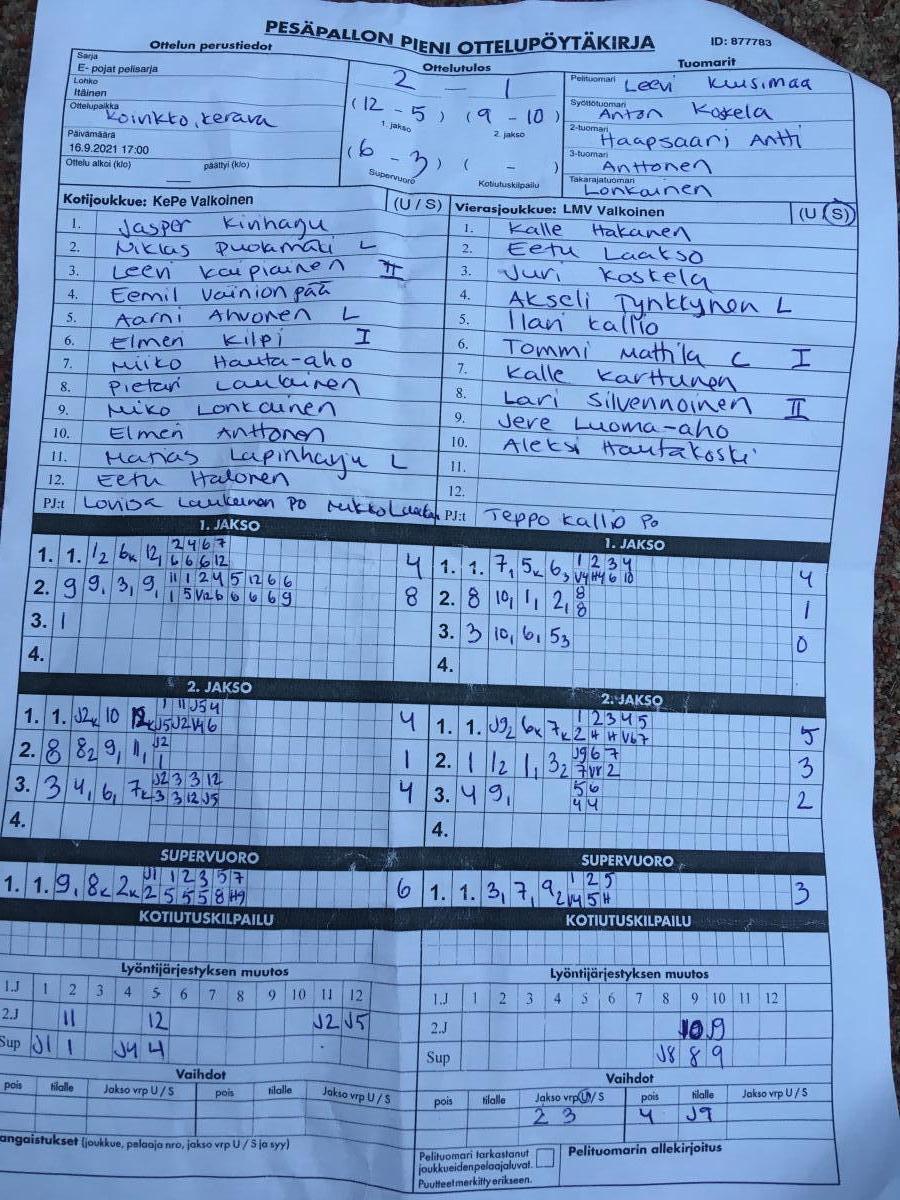 PESÄPALLON PIENI OTTELUPÖYTÄKIRJA
ID: 877783
Ottelun perustiedot
Sarja
E- pojat pelisarja
Lohko
Itäinen
Ottelupaikka
Koivikko, kerava
Päivämäärä
16.9.2021 17:00
Ottelu alkoi (klo) päättyi (klo)
Ottelutulos
2 — 1
(12 - 5) (9 - 10)
1. jakso 2. jakso
(6 - 3) ( - )
Supervuoro Kotiutuskilpailu
Tuomarit
Pelituomari Leevi Kuusimaa
Syöttötuomari Anton Koskela
2-tuomari Haapsaari Antti
3-tuomari Anttonen
Takarajatuomari Lonkainen
Kotijoukkue: KePe Valkoinen (U / S)
1. Jasper Kinharju
2. Niklas Puolamäki L
3. Leevi Kaipiainen II
4. Eemil Väinionpää
5. Aarni Ahvonen L
6. Elmeri Kilpi I
7. Miiko Hauta-aho
8. Pietari Laukainen
9. Miko Lonkainen
10. Elmeri Anttonen
11. Matias Lapinharju L
12. Eetu Halonen
PJ:t Lovisa Laukainen Po Mikko
Vierasjoukkue: LMV Valkoinen (U / S)
1. Kalle Hakanen
2. Eetu Laakso
3. Juri Koskela
4. Akseli Tynkkynen L
5. Ilari Kallio
6. Tommi Mattila C I
7. Kalle Karttunen
8. Lari Silvennoinen II
9. Jere Luoma-aho
10. Aleksi Hautakoski
11.
12.
PJ:t Teppo Kallio Po
1. JAKSO
1. 1. 1/2 6k 12, 2 4 6 7 4
6 6 6 12
2. 9 9, 3, 9, 11 1 2 4 5 12 6 6 8
1 5 V12 6 6 6 6 9
3. 1
4.
1. JAKSO
1. 1. 7, 5k 6, 1 2 3 4 4
V4 H4 6 10
2. 8 10, 1, 2, 8 1
8
3. 3 10, 6, 53 0
4.
2. JAKSO
1. 1. J2k 10 12k 1 11 J5 4 4
J5 J2 V4 6
2. 8 82 9, 11, J2 1
1
3. 3 4, 6, 7k J2 3 3 12 4
3 3 12 J5
4.
2. JAKSO
1. 1. J92 6k 7k 1 2 3 4 5 5
2 H H V6 7
2. 1 1/2 1, 32 J9 6 7 3
7 V7 2
3. 4 9, 5 6 2
4 4
4.
SUPERVUORO
1. 1. 9, 8k 2k J1 1 2 3 5 7 6
2 5 5 5 8 H9
SUPERVUORO
1. 1. 3, 7, 92 1 2 5 3
V4 5 H
KOTIUTUSKILPAILU
KOTIUTUSKILPAILU
Lyöntijärjestyksen muutos
1.J 1 2 3 4 5 6 7 8 9 10 11 12
2.J 11 12 J2 J5
Sup J1 1 J4 4
Lyöntijärjestyksen muutos
1.J 1 2 3 4 5 6 7 8 9 10 11 12
2.J J9
Sup J8 8 9
Vaihdot
pois tilalle Jakso vrp U / S pois tilalle Jakso vrp U / S
Vaihdot
pois tilalle Jakso vrp U / S pois tilalle Jakso vrp U / S
2 3 4 J9
angaistukset (joukkue, pelaaja nro, jakso vrp U / S ja syy)
Pelituomari tarkastanut
joukkueidenpelaajaluvat.
Puutteet merkitty erikseen.
Pelituomarin allekirjoitus